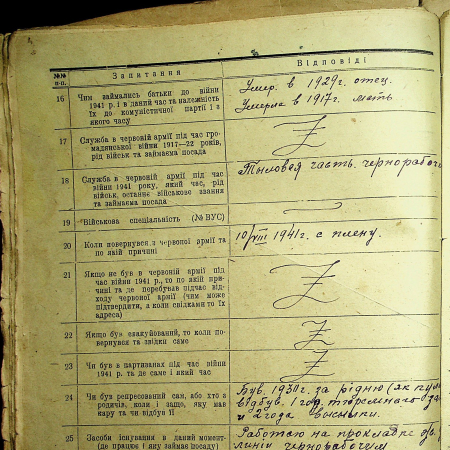 №№ п.п.
Запитання
Відповіді
16
Чим займались батьки до війни
1941 р. і в даний час та належність
їх до комуністичної партії і з
якого часу
Умер. в 1929г. отец.
Умерла в 1917г. мать
17
Служба в червоній армії під час гро-
мадянської війни 1917—22 років,
рід військ та займаєма посада
Z
18
Служба в червоній армії під час
війни 1941 року, який час, рід
військ, останнє військове звання
та займаєма посада
Тыловая часть. чернорабоч
19
Військова спеціальність (№ ВУС)
—
20
Коли повернувся з червоної армії та
по якій причині
10/VIII 1941г. с плену.
21
Якщо не був в червоній армії під
час війни 1941 р., то по якій при-
чині та де перебував підчас від-
ходу червоної армії (чим може
підтвердити, а коли свідками то їх
адреса)
Z
22
Якщо був евакуйований, то коли по-
вернувся та звідки саме
Z
23
Чи був в партизанах під час війни
1941 р. та де саме і який час
Z
24
Чи був репресований сам, або хто з
родичів, коли і защо, яку мав
кару та чи відбув її
Був. 1930г. за рідню (як
відбув. 1 год тюремного
и 2 года высылки.
25
Засоби існування в даний момент
(де працює і яку займає посаду)
Работаю на прокладке
линии чернорабочим